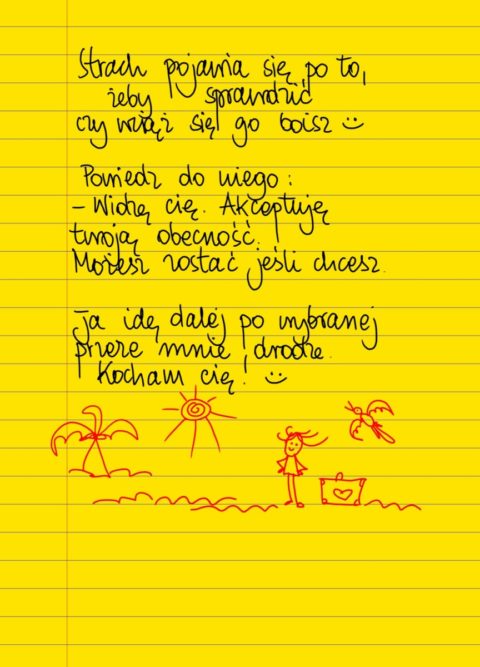 Strach pojawia się po to,
żeby sprawdzić
czy wciąż się go boisz :)
Powiedz do niego:
- Widzę cię. Akceptuję
twoją obecność.
Możesz zostać jeśli chcesz.
Ja idę dalej po wybranej
przeze mnie drodze.
Kocham cię! :)